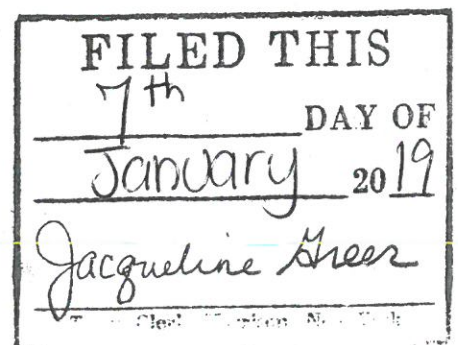 FILED THIS
7th DAY OF
January 2019
Jacqueline Greer
Clerk